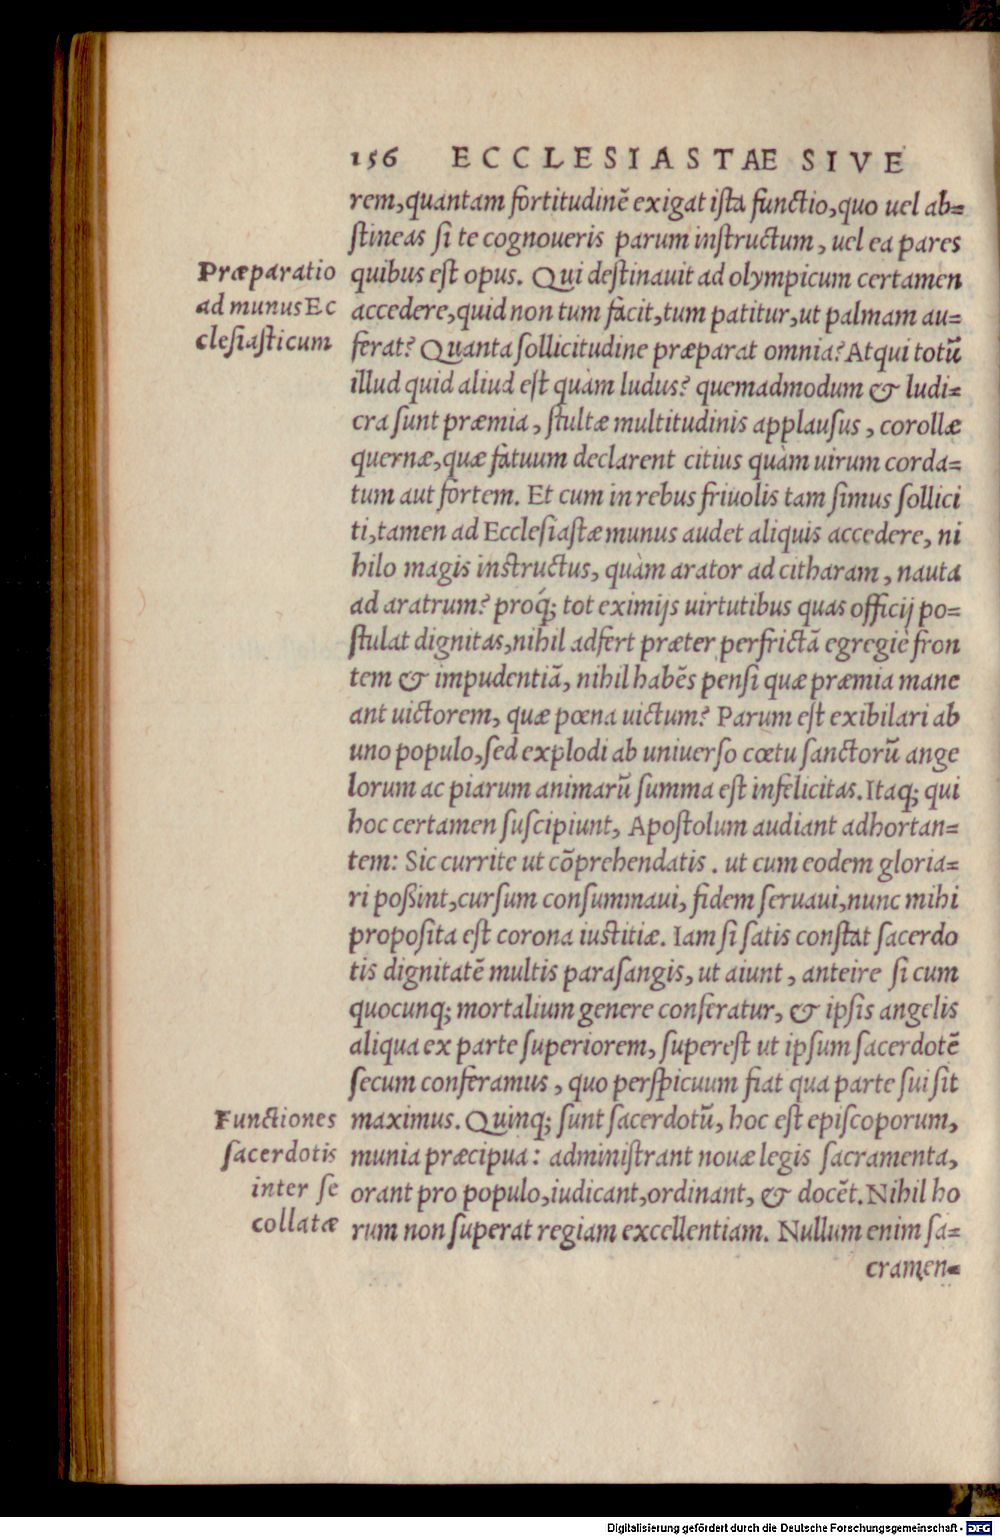 156 ECCLESIASTAE SIVE
rem,quantam fortitudinē exigat ista functio,quo uel ab=
stineas si te cognoueris parum instructum, uel ea pares
Præparatio
ad munus Ec
clesiasticum
quibus est opus. Qui destinauit ad olympicum certamen
accedere,quid non tum facit,tum patitur,ut palmam au=
ferat? Quanta sollicitudine præparat omnia? Atqui totū
illud quid aliud est quàm ludus? quemadmodum & ludi=
cra sunt præmia, stultæ multitudinis applausus, corollæ
quernæ,quæ fatuum declarent citius quàm uirum corda=
tum aut fortem. Et cum in rebus friuolis tam simus sollici
ti,tamen ad Ecclesiastæ munus audet aliquis accedere, ni
hilo magis instructus, quàm arator ad citharam, nauta
ad aratrum? proq́; tot eximijs uirtutibus quas officij po=
stulat dignitas,nihil adfert præter perfrictā egregiè fron
tem & impudentiā, nihil habēs pensi quæ præmia mane
ant uictorem, quæ pœna uictum? Parum est exibilari ab
uno populo,sed explodi ab uniuerso cœtu sanctorū ange
lorum ac piarum animarū summa est infelicitas. Itaq; qui
hoc certamen suscipiunt, Apostolum audiant adhortan=
tem: Sic currite ut cōprehendatis. ut cum eodem gloria=
ri poßint,cursum consummaui, fidem seruaui,nunc mihi
proposita est corona iustitiæ. Iam si satis constat sacerdo
tis dignitatē multis parasangis, ut aiunt, anteire si cum
quocunq; mortalium genere conferatur, & ipsis angelis
aliqua ex parte superiorem, superest ut ipsum sacerdotē
secum conferamus, quo perspicuum fiat qua parte sui sit
Functiones
sacerdotis
inter se
collatæ
maximus. Quinq; sunt sacerdotū, hoc est episcoporum,
munia præcipua: administrant nouæ legis sacramenta,
orant pro populo,iudicant,ordinant, & docēt. Nihil ho
rum non superat regiam excellentiam. Nullum enim sa=
cramen=
Digitalisierung gefördert durch die Deutsche Forschungsgemeinschaft - DFG